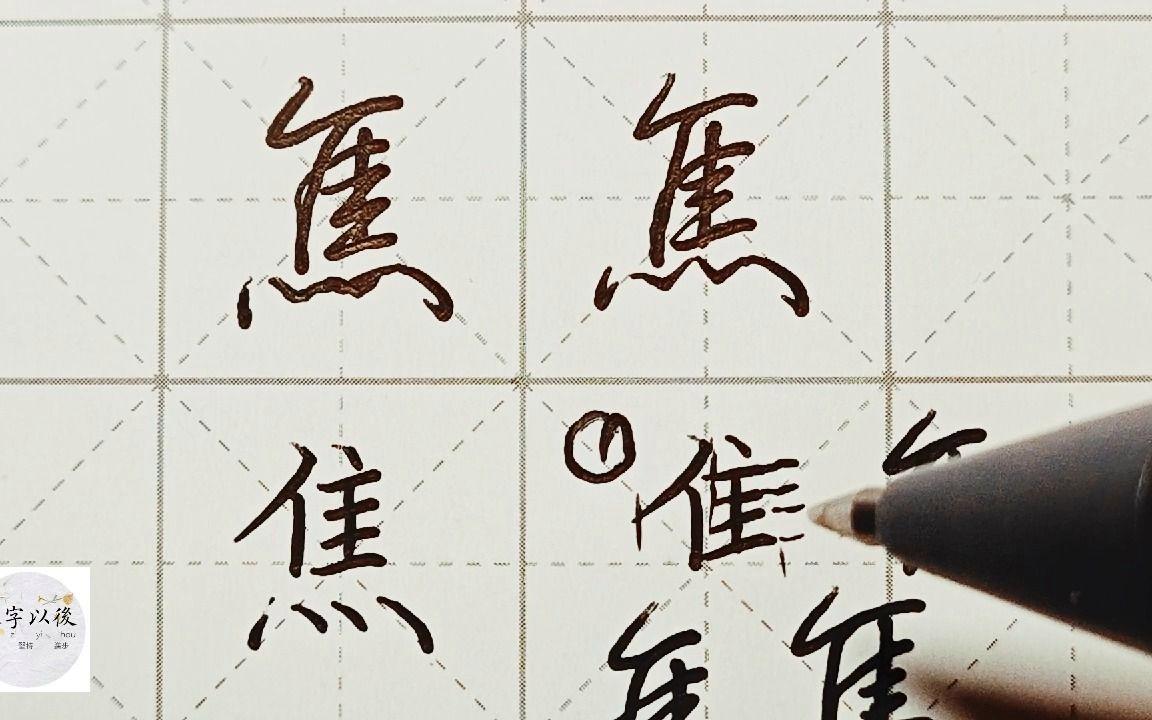 焦 焦
焦 ① 隹
隹 隹
字以後
yi hou
堅持 進步